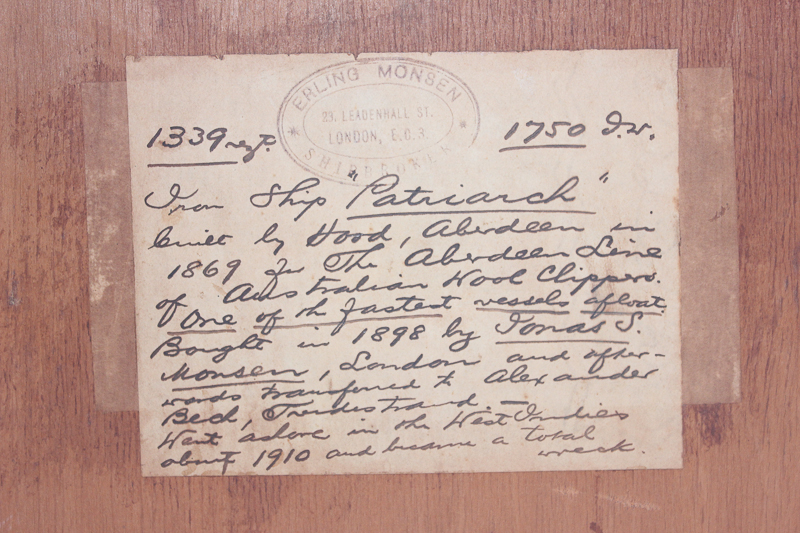 ERLING MONSEN
23, LEADENHALL ST.
LONDON, E.C.3.
SHIPBROKER
1339 regt.
1750 D.W.
Iron Ship "Patriarch"
built by Hood, Aberdeen in
1869 for The Aberdeen Line
of Australian Wool Clippers.
One of th fastest vessels afloat.
Bought in 1898 by Jonas S.
Monsen, London and after-
wards transferred to Alexander
Bech, Tvedestrand —
Went ashore in the West Indies
about 1910 and became a total
wreck.